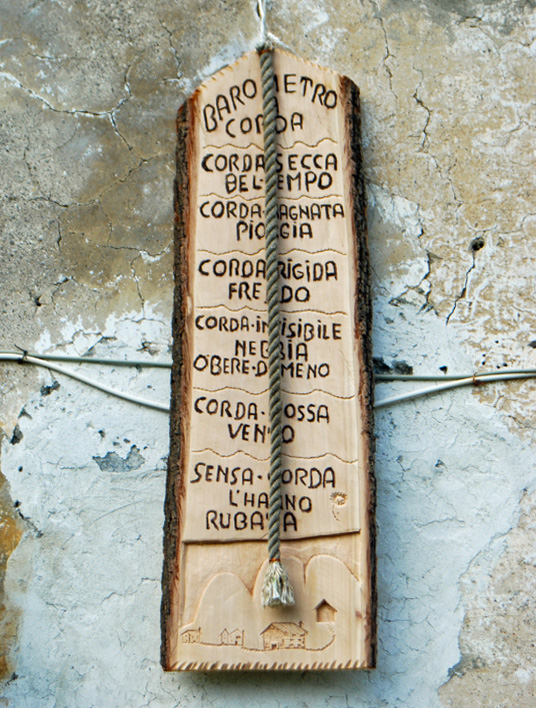 BAROMETRO
CORDA
CORDA SECCA
BEL·TEMPO
CORDA·BAGNATA
PIOGGIA
CORDA RIGIDA
FREDDO
CORDA·INVISIBILE
NEBBIA
O'BERE·DI MENO
CORDA·MOSSA
VENTO
SENSA·CORDA
L'HANNO
RUBATA